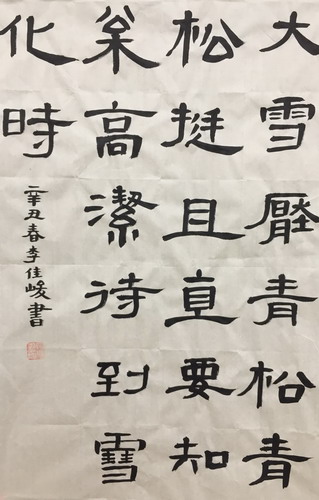 大雪壓青松青
松挺且直要知
松高潔待到雪
化時
辛丑春李佳峻書